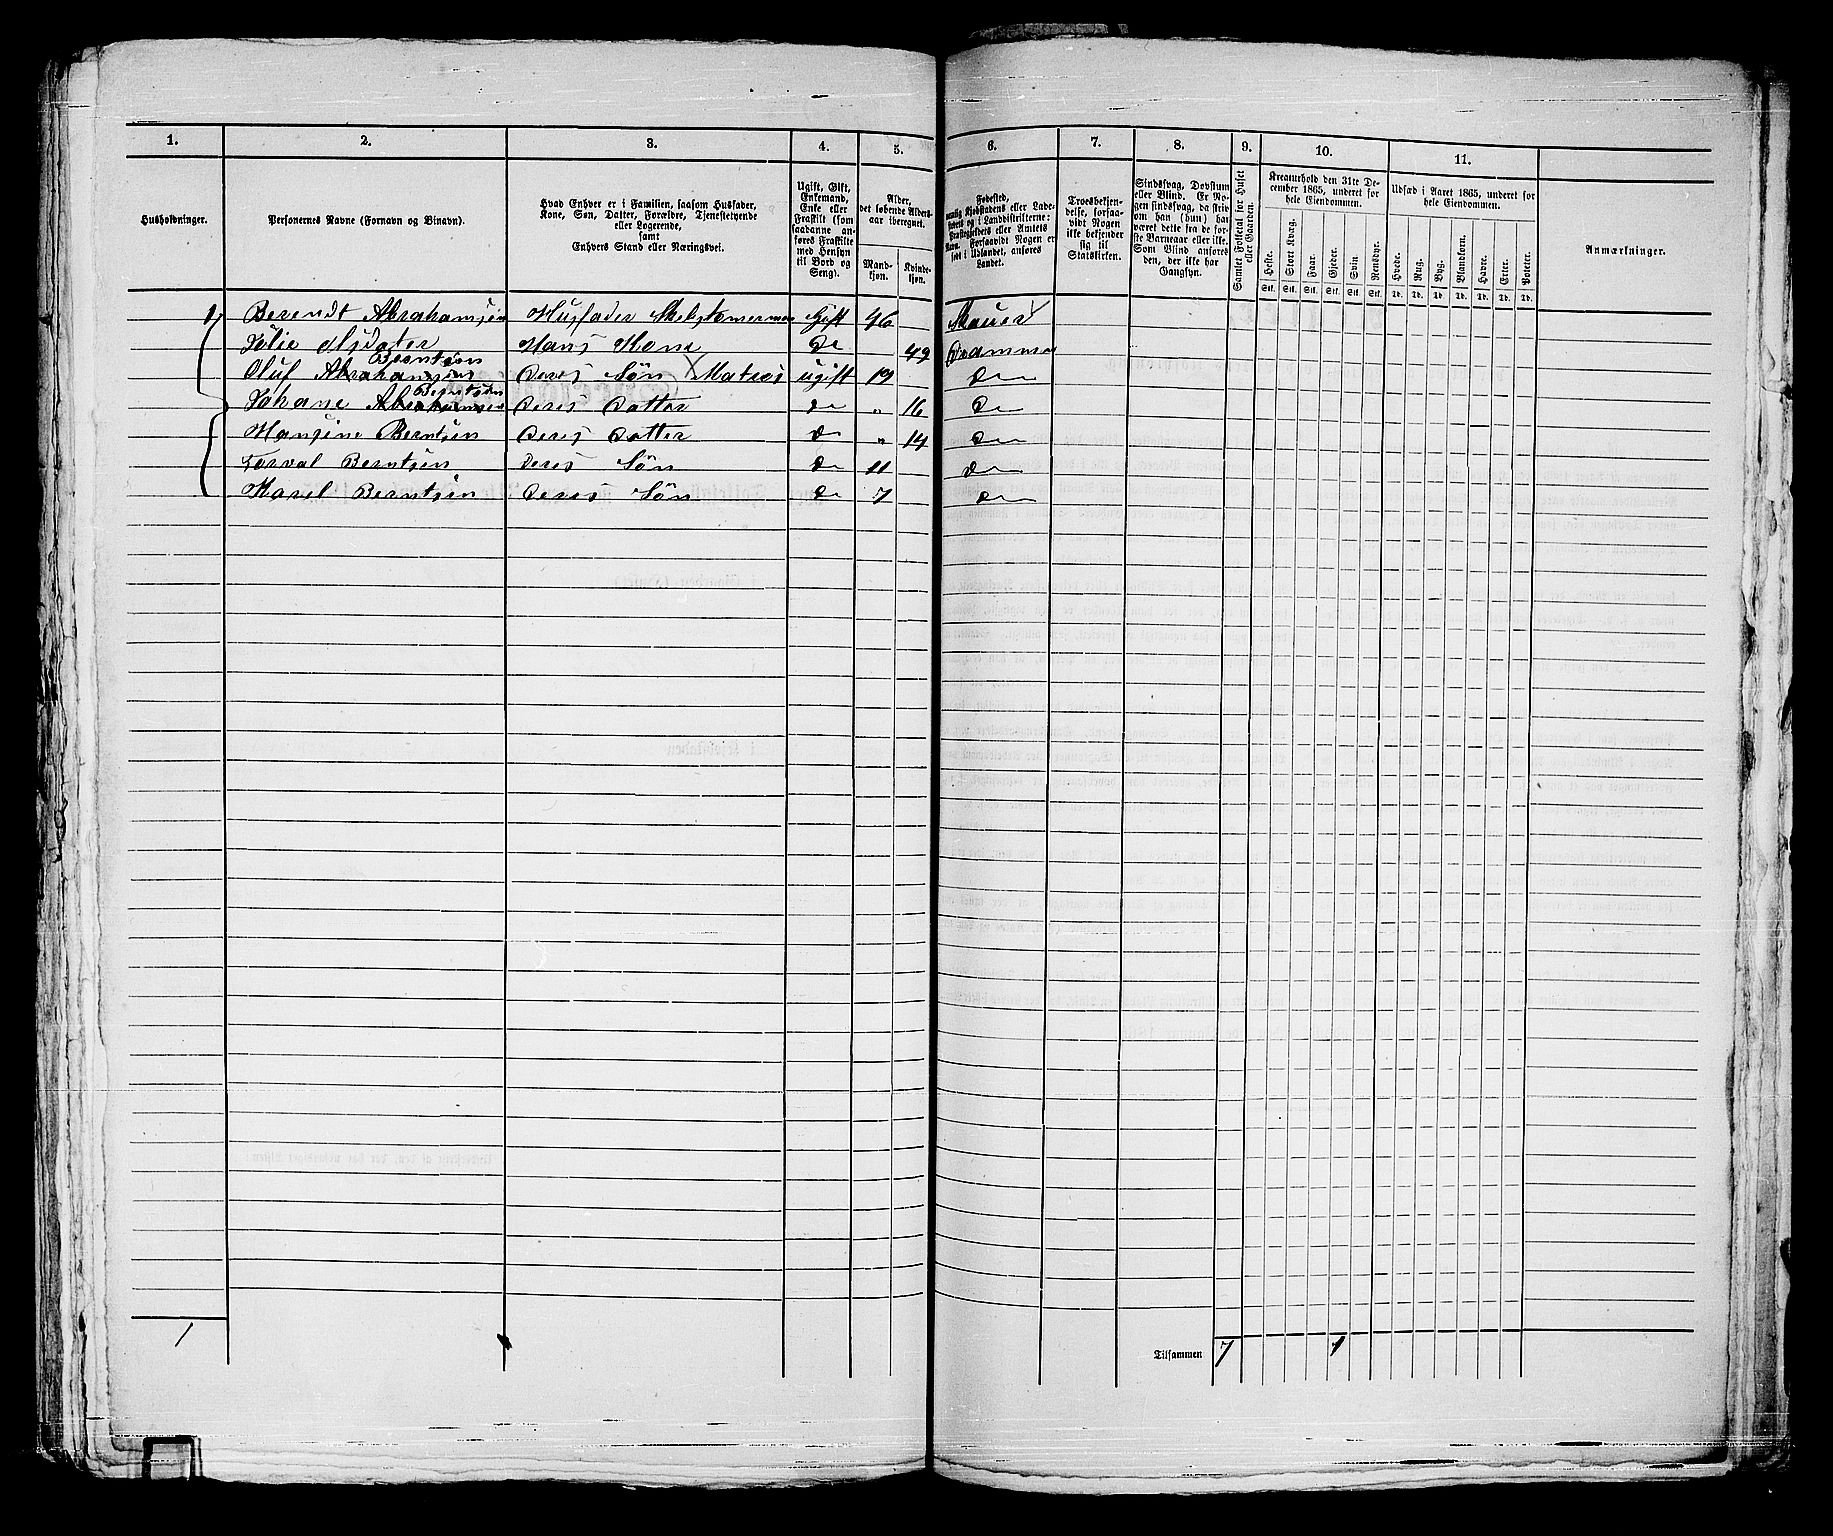 1. 2. 3. 4. 5. 6. 7. 8. 9. 10. 11.
Husholdninger.
Personernes Navne (Fornavn og Binavn).
Hvad Enhver er i Familien, saasom Husfader,
Kone, Søn, Datter, Forældre, Tjenestetyende
eller Logerende,
samt
Enhvers Stand eller Næringsvei.
Ugift, Gift,
Enkemand,
Enke eller
Fraskilt (som
saadanne an-
føres Fraskilte
med Hensyn
til Bord og
Seng).
Alder,
det løbende Alders-
aar iberegnet.
Mand-
kjøn.
Kvinde-
kjøn.
Fødested,
nemlig Kjøbstadens eller Lade-
stedets og i Landdistrikterne:
Præstegjeldets eller Amtets
Navn. Forsaavidt Nogen er
født i Udlandet, anføres
Landet.
Troesbekjen-
delse, forsaa-
vidt Nogen
ikke bekjender
sig til
Statskirken.
Sindssvag, Døvstum
eller Blind. Er No-
gen sindssvag, da skriv
om han (hun) har
været det fra de før-
ste Barneaar eller ikke.
Som Blind anføres
den, der ikke har
Gangsyn.
Samlet Folketal for Huset
eller Gaarden.
Kreaturhold den 31te De-
cember 1865, underet for
hele Eiendommen.
Heste. Stort Kvæg. Faar. Gjeder. Svin. Rensdyr.
Stk. Stk. Stk. Stk. Stk. Stk.
Udsæd i Aaret 1865, underet for
hele Eiendommen.
Hvede. Rug. Byg. Blandkorn. Havre. Erter. Poteter.
Td. Td. Td. Td. Td. Td. Td.
Anmærkninger.
1 Berendt Abrahamsen Husfader Gift 46
Hans Kone Do 49 Drammen
Berntsen
Oluf Abrahamsen Deres Søn Matros ugift 19 Do
Berntsen
Johane Abrahamsen Deres Datter Do " 16 Do
Hansine Berntsen Deres Datter Do " 14 Do
Torval Berntsen Deres Søn Do 11 Do
Karel Berntsen Deres Søn Do 7 Do
1
Tilsammen 7 1